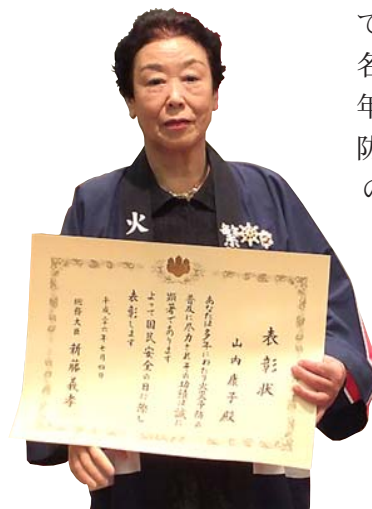 で
名
年
防
の
火
繁
表彰状
山内康子殿
あなたは多年にわたり火災予防の
普及に尽力されその功績は誠に
顕著であります
よって国民安全の日に際し
表彰します
平成二十六年七月四日
総務大臣 新藤義孝